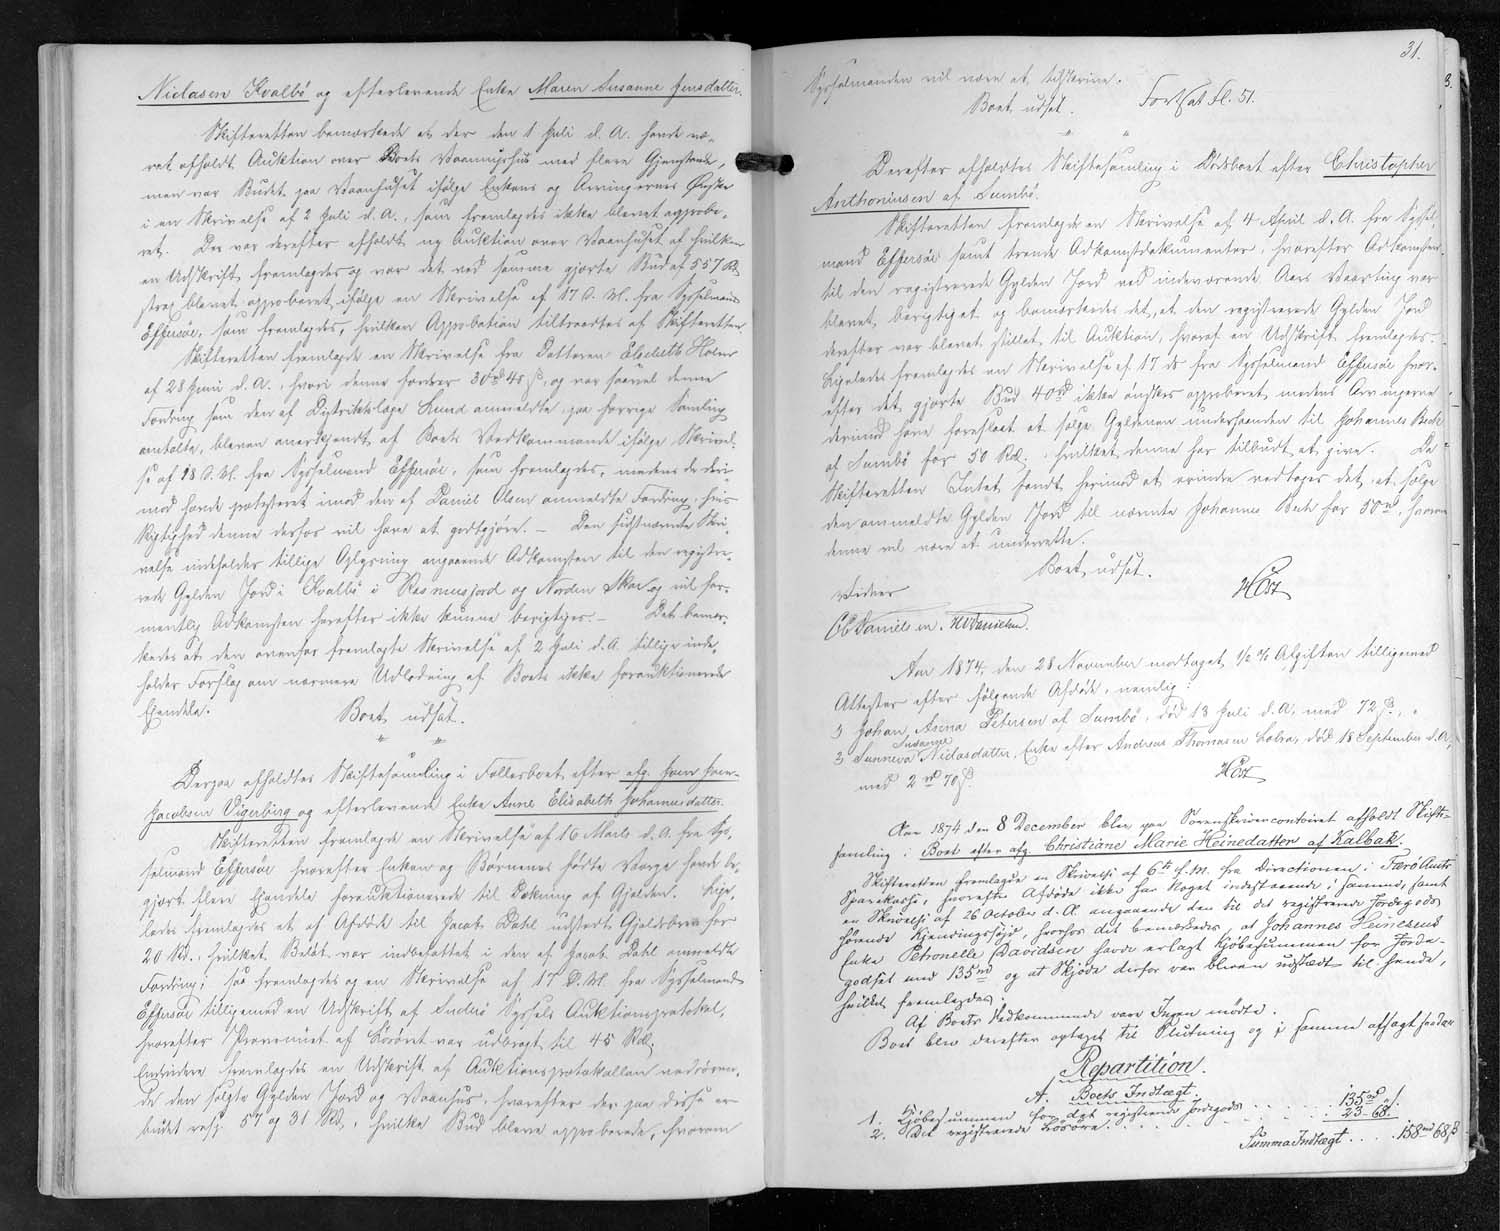 Niclasen Kvalbö og efterlevende Enke Maren Susanne Jensdatter.
Skifteretten bemærkede at der den 1 Juli d. A. havde væ-
ret afholdt Auktion over Boets Vaaningshus med flere Gjenstande,
men var Budet paa Vaanhuset ifølge Enkens og Arvingernes Ønske
i en Skrivelse af 2 Juli d. A., som fremlagdes ikke blevet approbe-
ret. Der var derefter afholdt ny Auktion over Vaanhuset af hvilken
en Udskrift fremlagdes og var det ved samme gjorte Bud af 557 Rd
strax blevet approberet ifølge en Skrivelse af 17 d. M. fra Sysselmand
Effersöe, som fremlagdes, hvilken Approbation tiltraadtes af Skifteretten.
Skifteretten fremlagde en Skrivelse fra Datteren Elsebeth Holm
af 28 Juni d. A., hvori denne fordrer 30 rd 48 ß, og var saavel denne
Fordring som den af Distriktslæge Lund anmeldte, paa forrige Samling
omtalte, bleven anerkjendt af Boets Vedkommende ifølge Skrivel-
se af 18 d. M. fra Sysselmand Effersöe, som fremlagdes, medens de deri-
mod havde protesteret imod den af Daniel Olsen anmeldte Fordring, hvis
Rigtighed denne derfor vil have at godtgjöre. — Den sidstnævnte Skri-
velse indeholder tillige Oplysning angaaende Adkomsten til den registre-
rede Gylden Jord i Kvalbö i Rasmusjord og Norden Skov og vil for-
mentlig Adkomsten herefter ikke kunne berigtiges. — Det bemær-
kedes at den ovenfor fremlagte Skrivelse af 2 Juli d. A. tillige inde-
holder Forslag om nærmere Udlodning af Boets ikke forauktionerede
Ejendele.
Boet udsat.
Derpaa afholdtes Skiftesamling i Fællesboet efter afg. Joen Joen-
Jacobsen Vigerberg og efterlevende Enke Anne Elisabeth Johannesdatter.
Skifteretten fremlagde en Skrivelse af 16 Marts d. A. fra Sys-
selmand Effersöe hvorefter Enken og Börnenes födte Værge havde be-
gjært flere Ejendele forauktionerede til Dækning af Gjelden. Lige-
ledes fremlagdes et af Afdöde til Jacob Dahl udstedt Gjeldsbrev for
20 Rd., hvilket Belöb var indbefattet i den af Jacob Dahl anmeldte
Fordring; saa fremlagdes og en Skrivelse af 17 d. M. fra Sysselmand
Effersöe tilligemed en Udskrift af Suderö Syssels Auktionsprotokol,
hvorefter Provenuet af Lösöret var udbragt til 45 Rd.
Endvidere fremlagdes en Udskrift af Auktionsprotokollen vedrören-
de den solgte Gylden Jord og Vaanhus, hvorefter der paa disse er
budet resp. 57 og 31 Rd., hvilke Bud bleve approberede, hvorom
31.
Sysselmanden vil være at tilskrive.
Boet udsat. Fortsat Fl. 51.
Derefter afholdtes Skiftesamling i Dödsboet efter Christopher
Anthoniusen af Sumbö.
Skifteretten fremlagde en Skrivelse af 4 April d. A. fra Syssel-
mand Effersöe samt trende Adkomstdokumenter, hvorefter Adkomsten
til den registrerede Gylden Jord ved indeværende Aars Vaarting var
blevet berigtiget og bemærkedes det, at den registrerede Gylden Jord
derefter var blevet stillet til Auktion, hvoraf en Udskrift fremlagdes.
Ligeledes fremlagdes en Skrivelse af 17 ds fra Sysselmand Effersöe hvor-
efter det gjorte Bud 40 rd ikke önskes approberet medens Arvingerne
derimod have foreslaaet at sælge Gyldenen underhaanden til Johannes Bech
af Sumbö for 50 Rd., hvilket denne har tilbudt at give. Da
Skifteretten Intet fandt herimod at erindre vedtoges det, at sælge
den ommeldte Gylden Jord til nævnte Johannes Bech for 50 rd, hvorom
denne vil være at underrette.
Boet udsat.
Vidner HCöst
Ob Danielsen. HDanielsen.
Aar 1874, den 28 November modtaget ½ % Afgiften tilligemed
Attester efter fölgende Afdöde, nemlig:
Johan, Asina Petersen af Sumbö, död 13 Juli d. A. med 72 ß.,
Susanne
Sunneva Niclasdatter, Enke efter Andreas Thomasen Laba, död 18 September d. A.,
med 2 rd 70 ß.
HCöst
Aar 1874 den 8 December blev paa Sorenskrivercontoiret afholdt Skifte-
samling i Boet efter afg. Christiane Marie Heinedatter af Kalbak.
Skifteretten fremlagde en Skrivelse af 6te f. M. fra Directionen i Færö Amts
Sparekasse, hvorefter Afdöde ikke har Noget indestaaende i samme, samt
en Skrivelse af 26 October d. A. angaaende den til det registrerede Jordegods
hörende Kjendingsgjöde, hvorhos det bemærkedes, at Johannes Heinesens
Enke Petronelle Davidsen havde erlagt Kjöbesummen for Jorde-
godset med 135 rd og at Skjöde derfor var bleven udstædt til hende,
hvilket fremlagdes.
Af Boets Vedkommende vare Ingen mödte.
Boet blev derefter optaget til Slutning og i samme afsagt saadan
Repartition.
A. Boets Indtægt.
1. Kjöbesummen for det registrerede Jordegods . . . . . 135 rd " ß.
2. Det registrerede Lösöre . . . . . . . . 23 - 68 -
Summa Indtægt . . . . 158 rd 68 ß